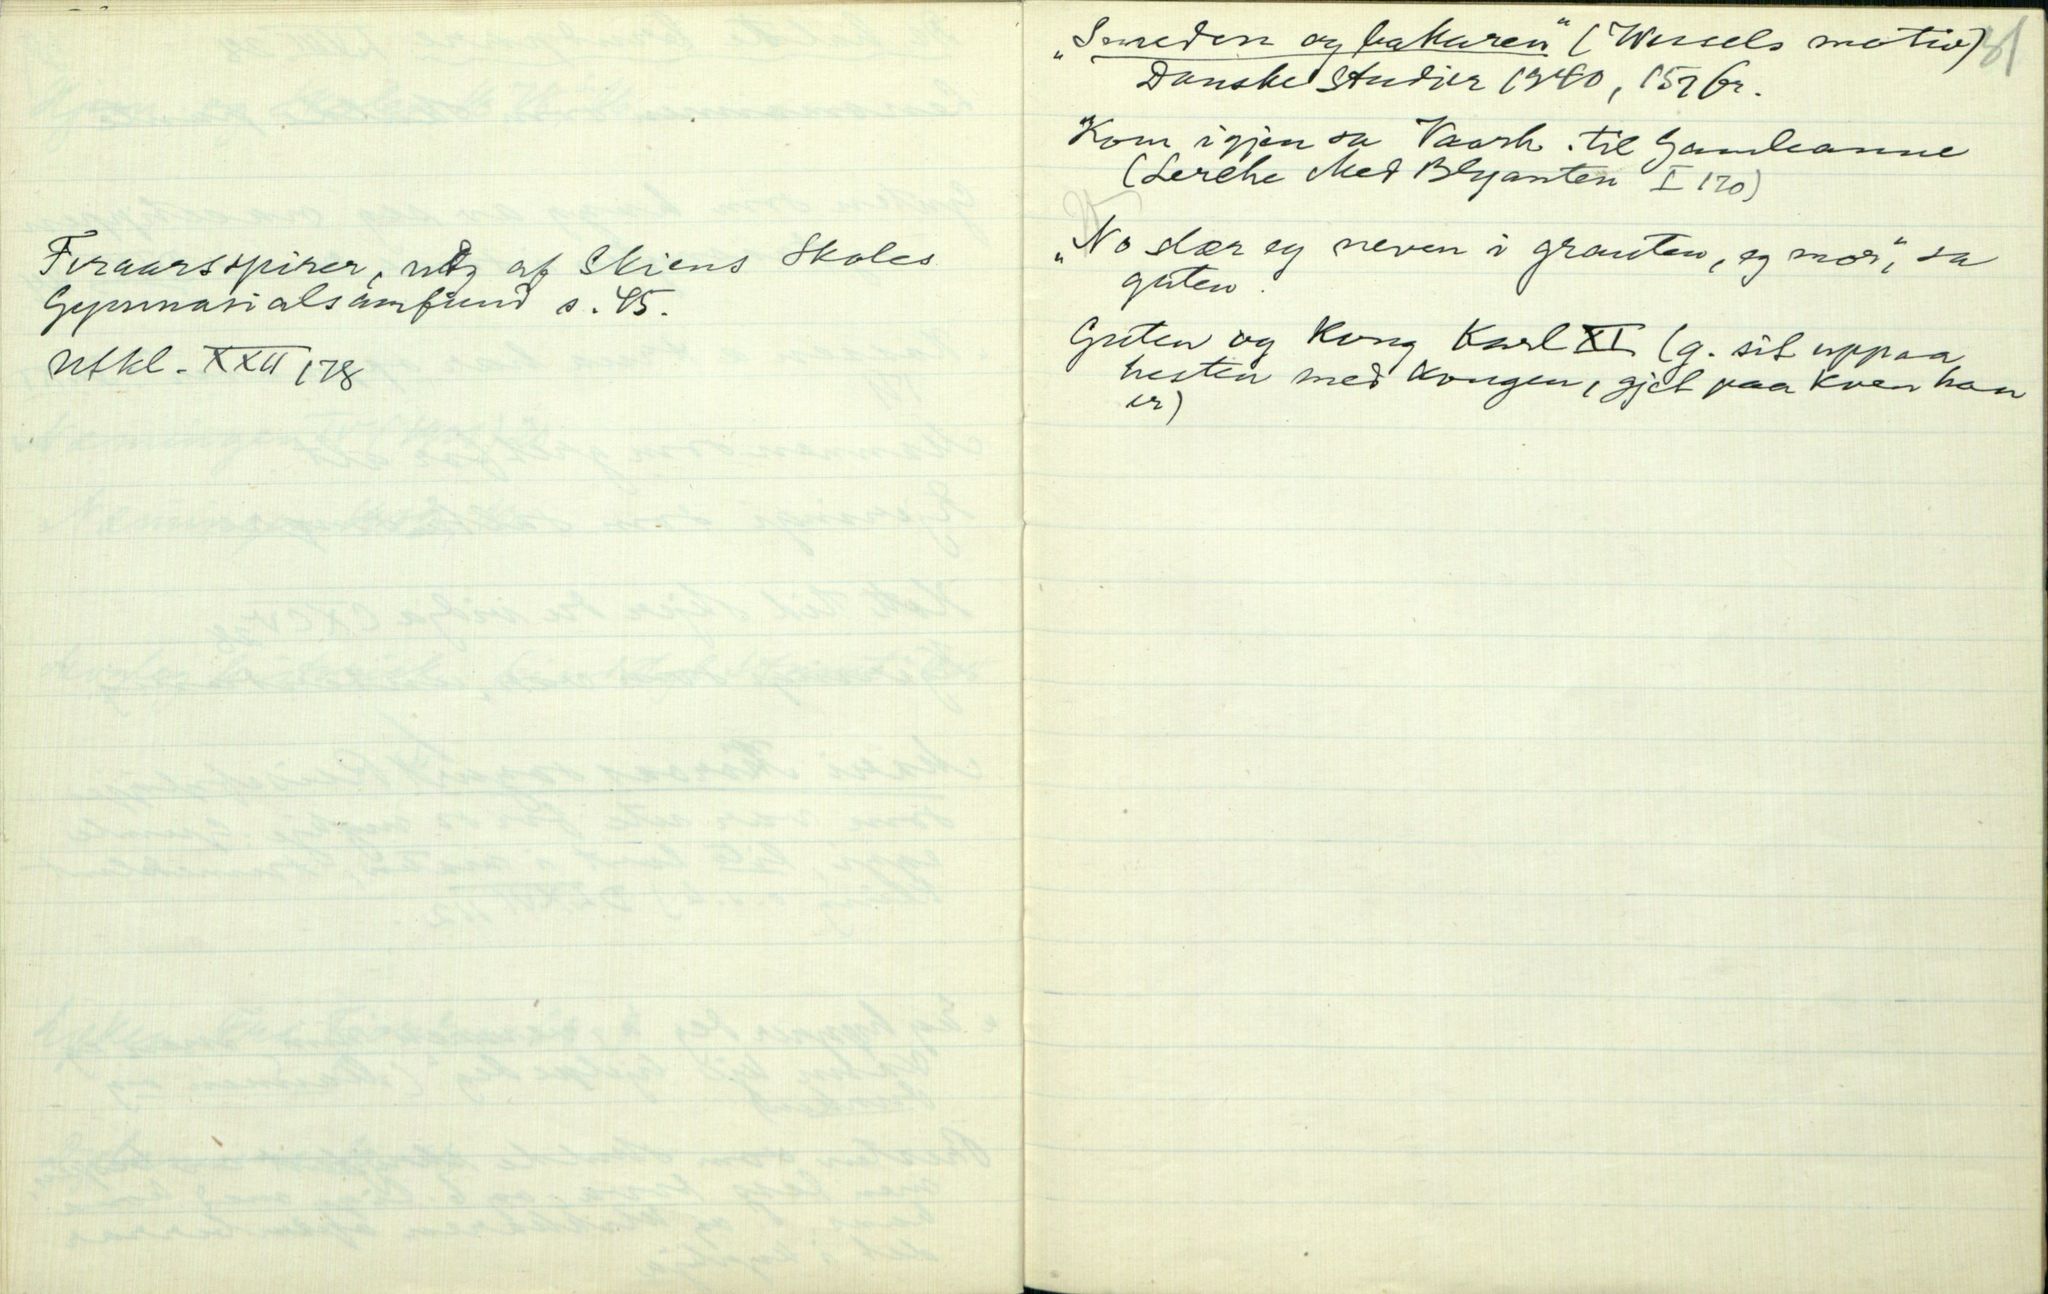 Foraarsspirer, utg af Skiens Skoles
Gymnasialsamfund s. 45.
Nfkl. XXII 178
"Smeden og bakaren" (Wessels motiv)
Danske Studier 1940, 157 fr.
"Kom igjen sa Vaarh. til Gamleanne
(Lerche Med Blyanten I 170)
"No slær eg neven i grauten, eg mor", sa
guten.
Guten og Kong Karl XI (g. sit uppaa
hesten med kongen, gjet paa kven han
er)